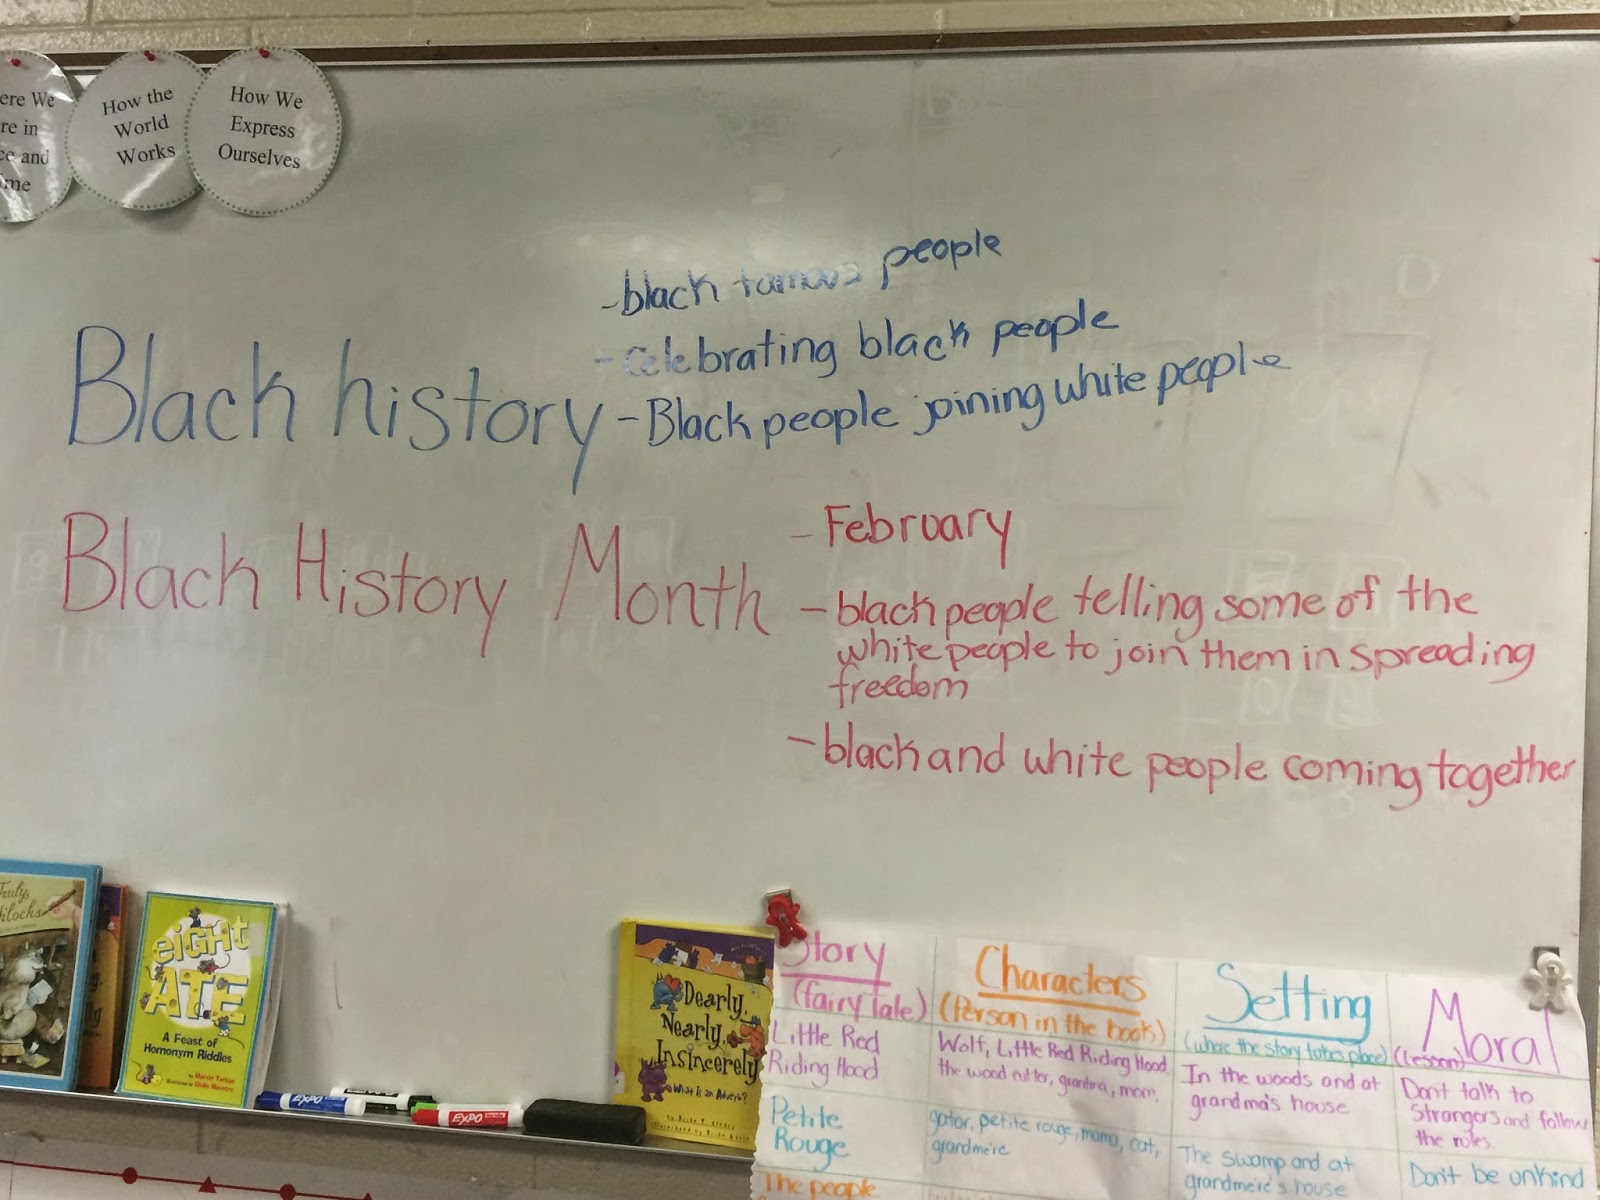 ere We
re in
ce and
ime
How the
World
Works
How We
Express
Ourselves
Black history
-black famous people
-Celebrating black people
-Black people joining white people
Black History Month
-February
-black people telling some of the
white people to join them in spreading
freedom
-black and white people coming together
Truly,
eight
ATE
A Feast of
Homonym Riddles
by Marvin Terban
Dearly,
Nearly,
Insincerely
What Is an Adverb?
EXPO
EXPO
Story
(fairy tale)
Characters
(Person in the book)
Setting
(where the story takes place)
Moral
(lesson)
Little Red
Riding Hood
Wolf, Little Red Riding Hood,
the wood cutter, grandma, mom.
In the woods and at
grandma's house
Don't talk to
strangers and follow
the rules.
Petite
Rouge
gator, petite rouge, mama, cat,
grandmeire
The swamp and at
grandmeire's house
Don't be unkind
The people